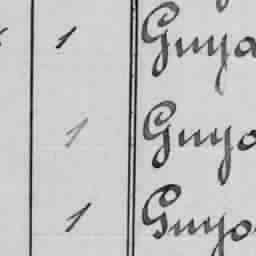 1 Guya
1 Guyo
1 Guyo